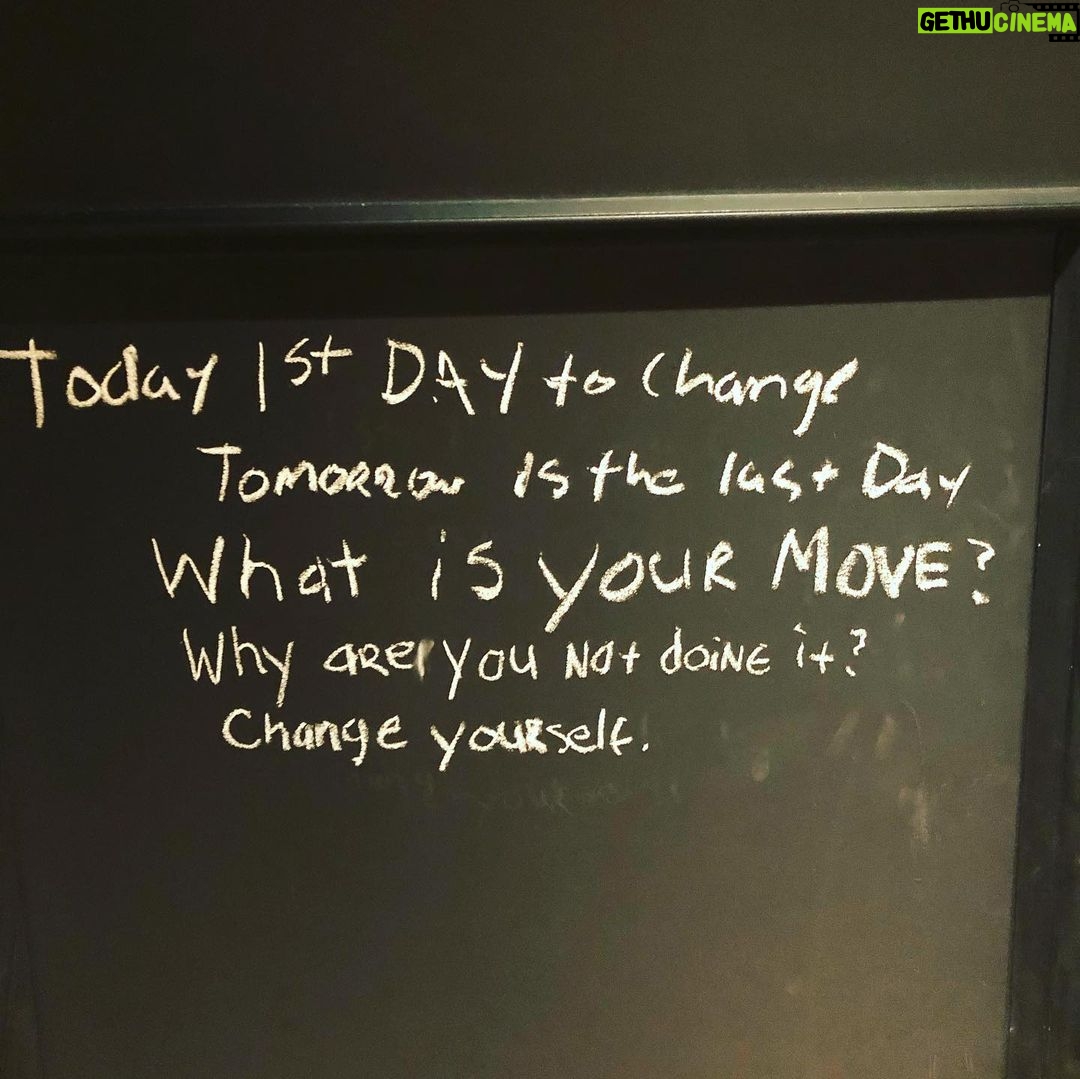 GETHUCINEMA
Today 1st DAY to Change
Tomorrow is the last Day
What is YOUR MOVE?
Why are you Not doiNE it?
Change yourself.